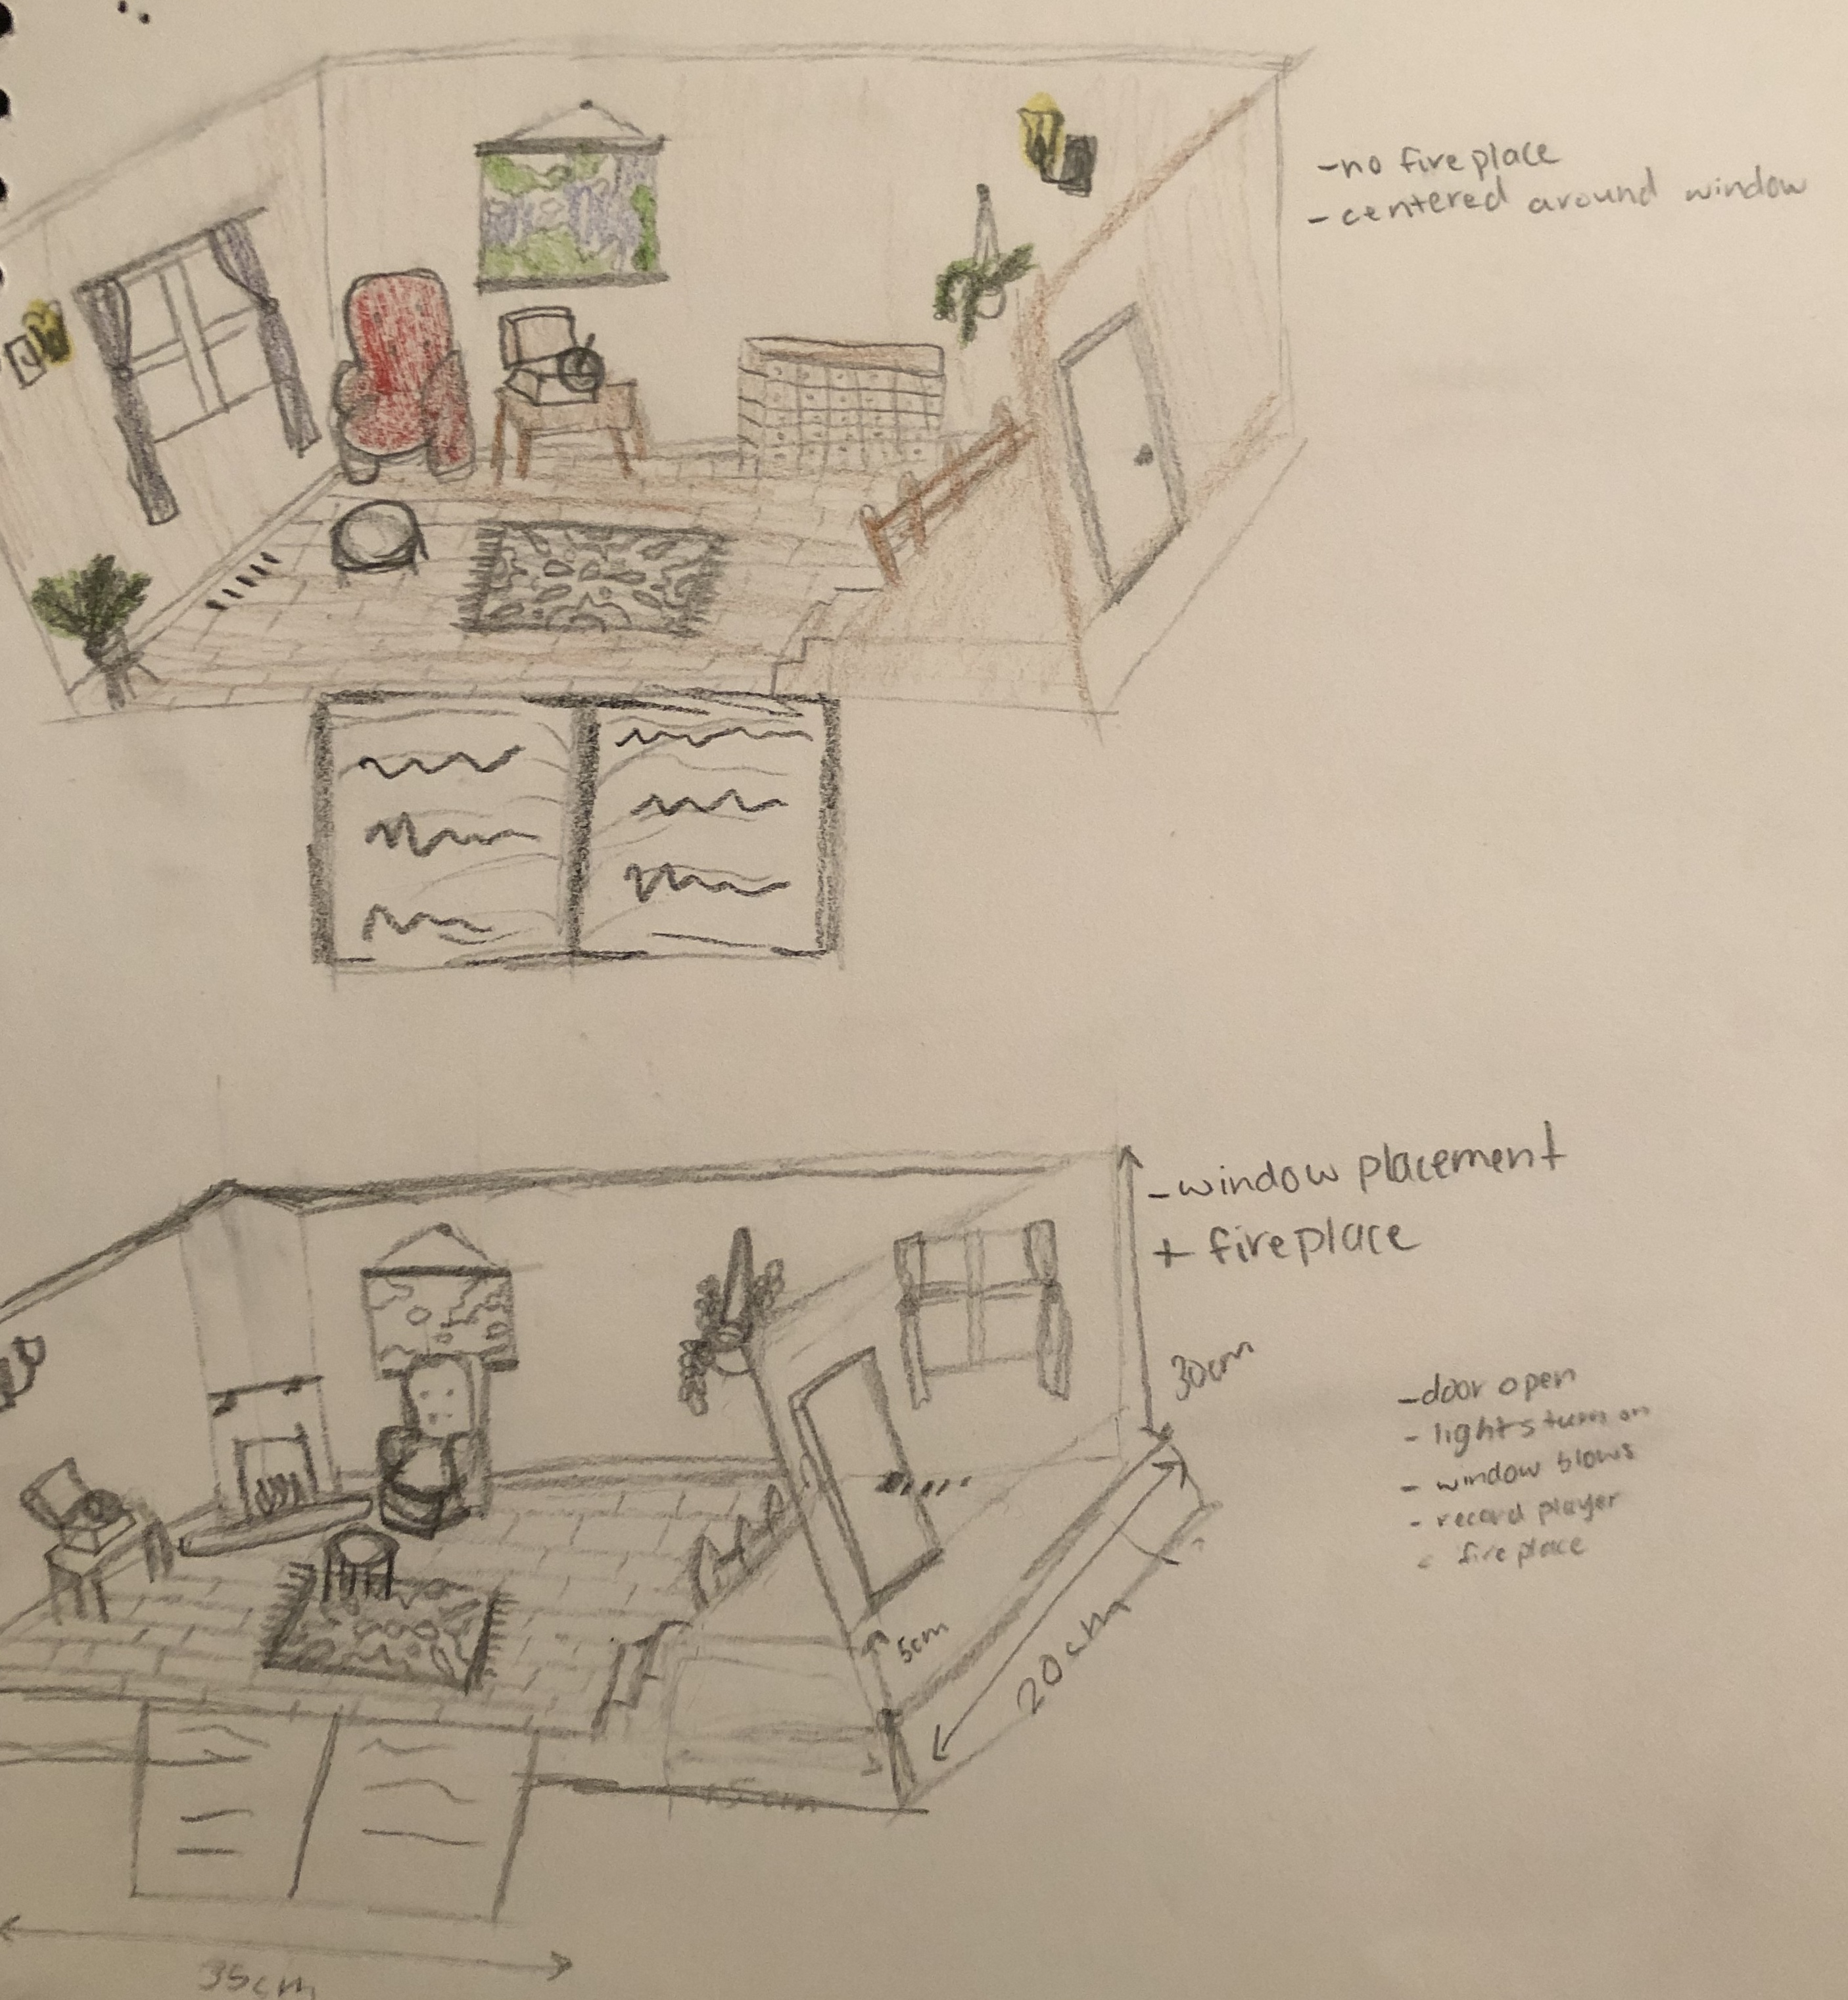 -no fireplace
-centered around window
-window placement
+ fireplace
30cm
-door open
- lights turn on
- window blows
- record player
fireplace
5cm
20cm
15cm
35cm